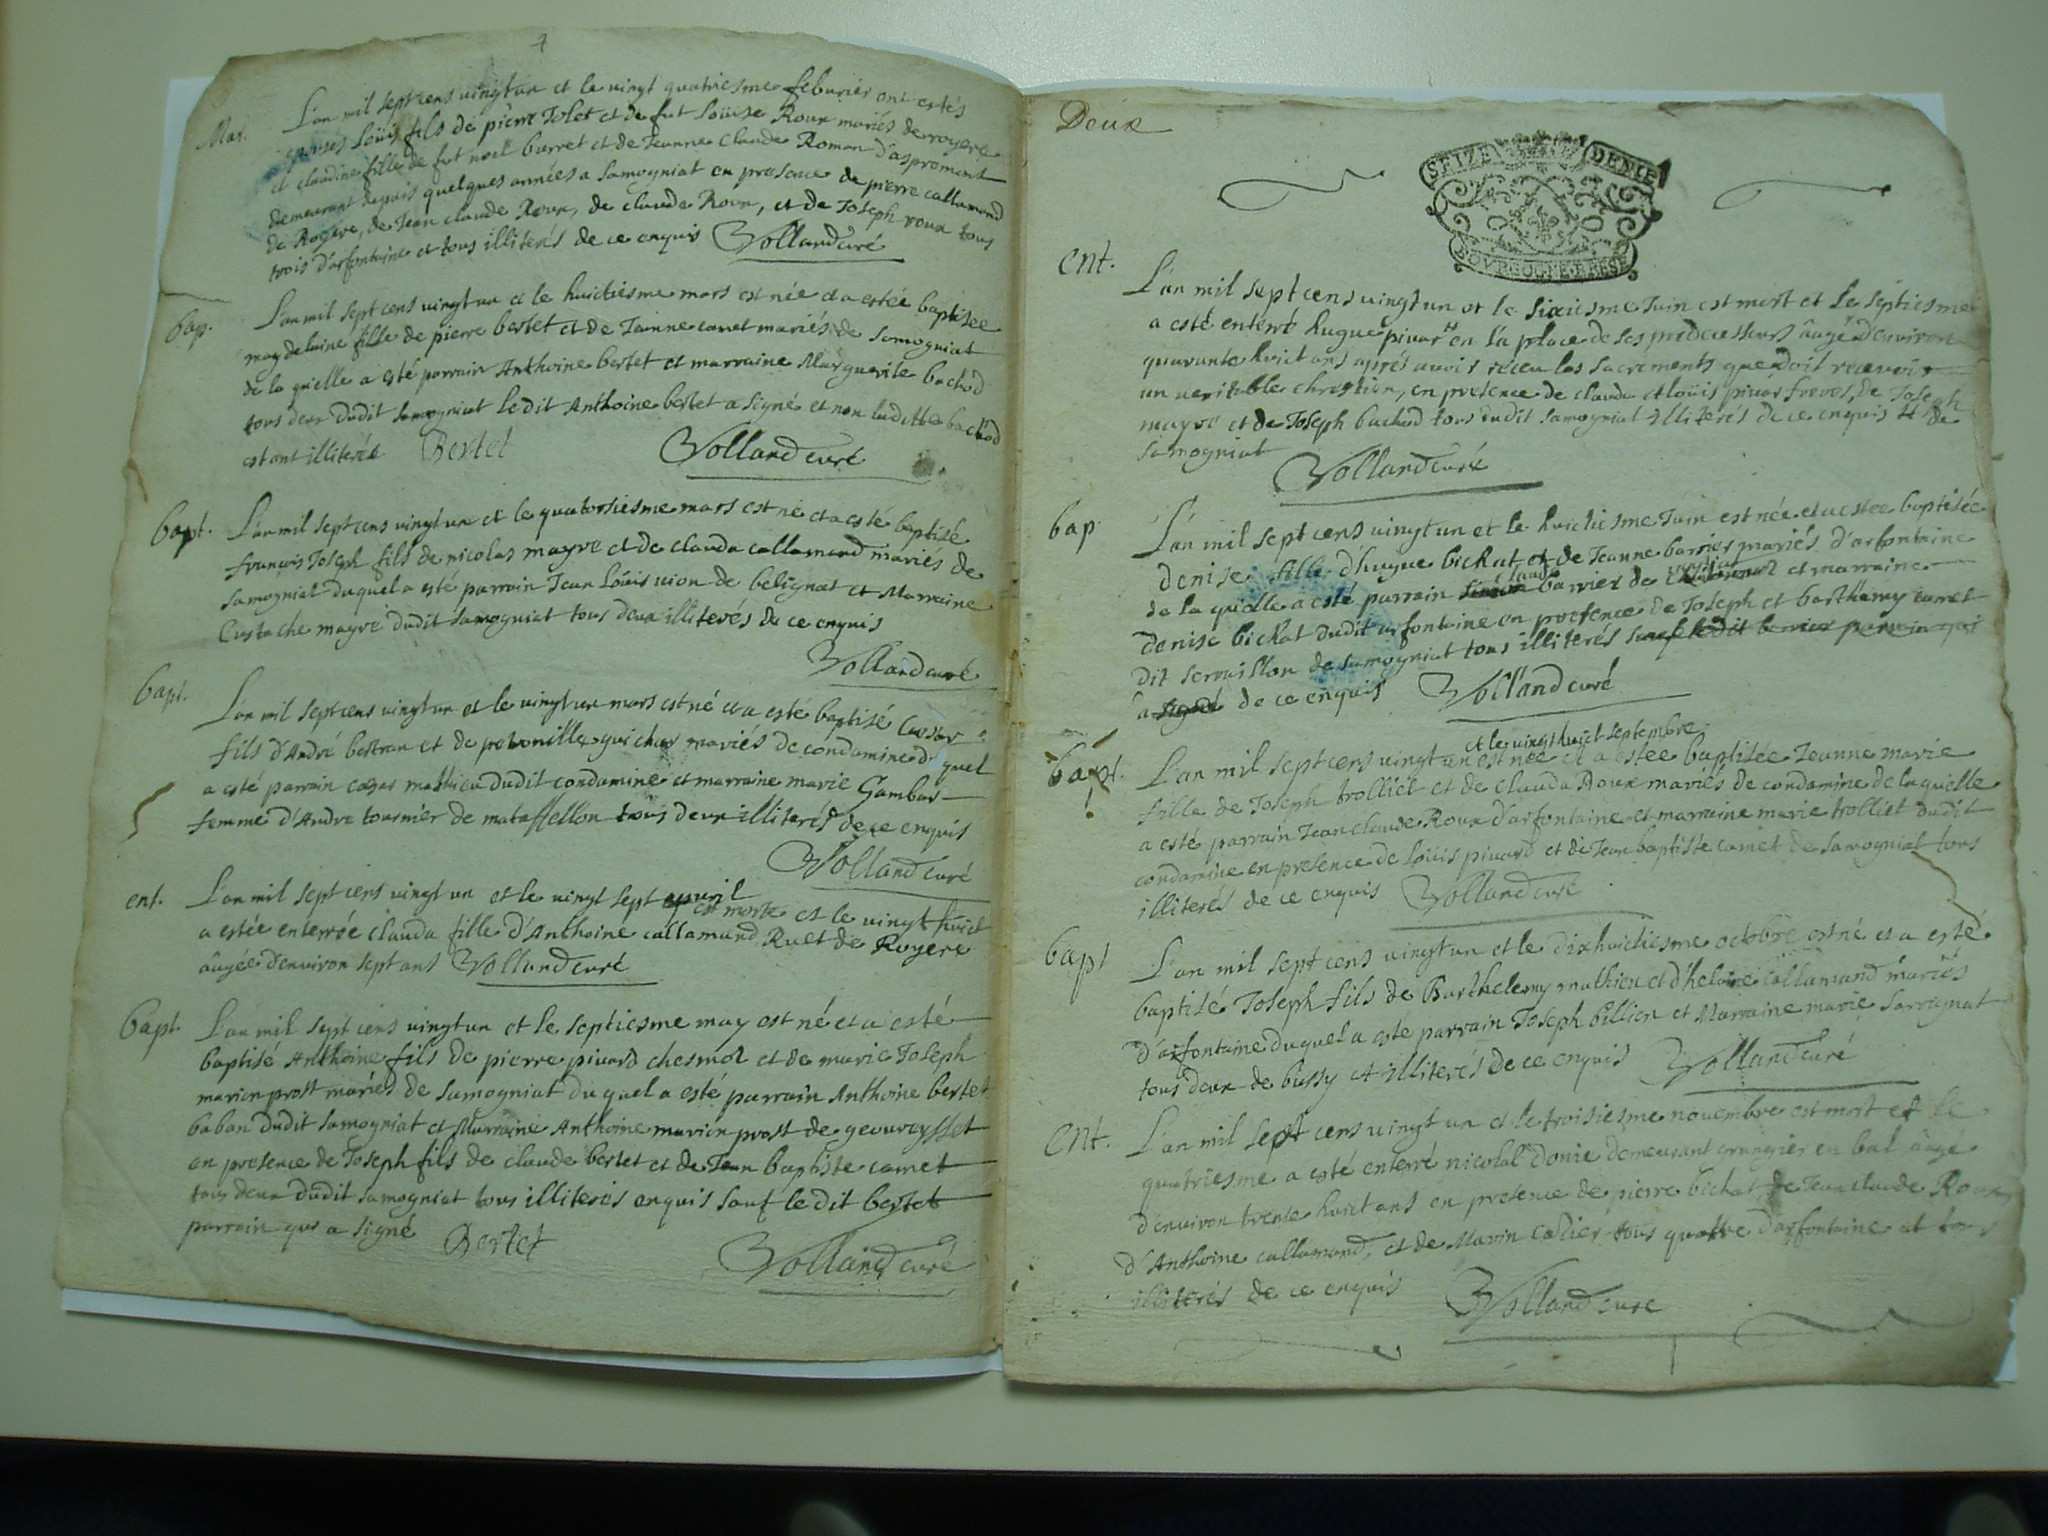 Mar.
L'an mil sept cens vingt un et le vingt quatriesme feburier ont estés
épousés Loüis fils de pierre Tolet et de fut Loüise Roux mariés de royere
et claudine fille de fut noel burret et de Jeanne Claude Roman d'aspromont
demeurant depuis quelques années a Samogniat en presence de pierre callamand
de Rogere, de Jean claude Roux, de claude Roux, et de Joseph roux tous
trois d'arfontaine et tous illiterés de ce enquis Volland curé
bap.
L'an mil sept cens vingt un et le huictiesme mars est née et a estée baptisée
magdelaine fille de pierre bertet et de Jeanne carret mariés de Samogniat
de la quelle a esté parrain Anthoine bertet et marraine Marguerite bachod
tous deux dudit samogniat ledit Anthoine bertet a signé et non laditte bachod
estant illiterée Bertet Volland curé
bapt.
L'an mil sept cens vingt un et le quatorsiesme mars est né et a esté baptisé
françois Joseph fils de nicolas mayre et de clauda callamand mariés de
samogniat duquel a esté parrain Jean Loüis vion de belignat et Marraine
Eustache mayre dudit samogniat tous deux illiterés de ce enquis
Volland curé
bapt.
L'an mil sept cens vingt un et le vingt un mars est né et a esté baptisé Cæsar
fils d'André bertran et de petronille guichar mariés de condamine duquel
a esté parrain cæsar mathieu dudit condamine et marraine marie Gambar
femme d'Andre tournier de matafellon tous deux illiterés de ce enquis
Volland curé
ent.
L'an mil sept cens vingt un et le vingt sept avril est morte et le vingt huict
a estée enterrée clauda fille d'Anthoine callamand Ruet de Royere
âugée d'environ sept ans Volland curé
bapt.
L'an mil sept cens vingt un et le septiesme may est né et a esté
baptisé Anthoine fils de pierre pivard chesmol et de marie Joseph
marion prost mariés de samogniat duquel a esté parrain Anthoine bertet
baban dudit samogniat et Marraine Anthoine marion prost de geovreysset
en presence de Joseph fils de claude bertet et de Jean baptiste carret
tous deux dudit samogniat tous illiterés enquis sauf le dit bertet
parrain qui a signé Bertet
Volland curé
Deux
SEIZE DENIE
BOURGOGNE BRESE
ent.
L'an mil sept cens vingt un et le sixiesme Juin est mort et le septiesme
a esté enterré hugue pivar H en la place de ses predecesseurs âugé d'environ
quarante huict ans aprés avoir receu les sacrements que doit recevoir
un veritable chrestien, en presence de claude et loüis pivar freres, de Joseph
mayre et de Joseph bachod tous dudit samogniat illiterés de ce enquis H de
samogniat
Volland curé
bap.
L'an mil sept cens vingt un et le huictiesme Juin est née et a estee baptisée
denise fille d'hugue bichat et de Jeanne barrier mariés d'arfontaine
de la quelle a esté parrain barrier de et marraine
denise bichat dudit arfontaine en presence de Joseph et barthemy carret
dit servillon de samogniat tous illiterés sauf ledit barrier parrain qui
a signé de ce enquis Volland curé
bapt.
et le vingt huict septembre
L'an mil sept cens vingt un est née et a estee baptisée Jeanne marie
fille de Joseph trolliet et de clauda Roux mariés de condamine de laquelle
a esté parrain Jean claude Roux d'arfontaine et marraine marie trolliet dudit
condamine en presence de loüis pivard et de Jean baptiste carret de samogniat tous
illiterés de ce enquis Volland curé
bapt
L'an mil sept cens vingt un et le dixhuictiesme octobre est né et a esté
baptisé Joseph fils de Barthelemy mathieu et d'helaine Callamand mariés
d'arfontaine duquel a esté parrain Joseph billion et Marraine marie Sarragnat
tous deux de bussy et illiterés de ce enquis Volland curé
ent.
L'an mil sept cens vingt un et le troisiesme novembre est mort et le
quatriesme a esté enterré nicolas donie demeurant grangier en bul âugé
d'environ trente huict ans en presence de pierre bichat, de Jean claude Roux
d'Anthoine callamand, et de Marin cadier tous quattre d'arfontaine et tous
illiterés de ce enquis Volland curé